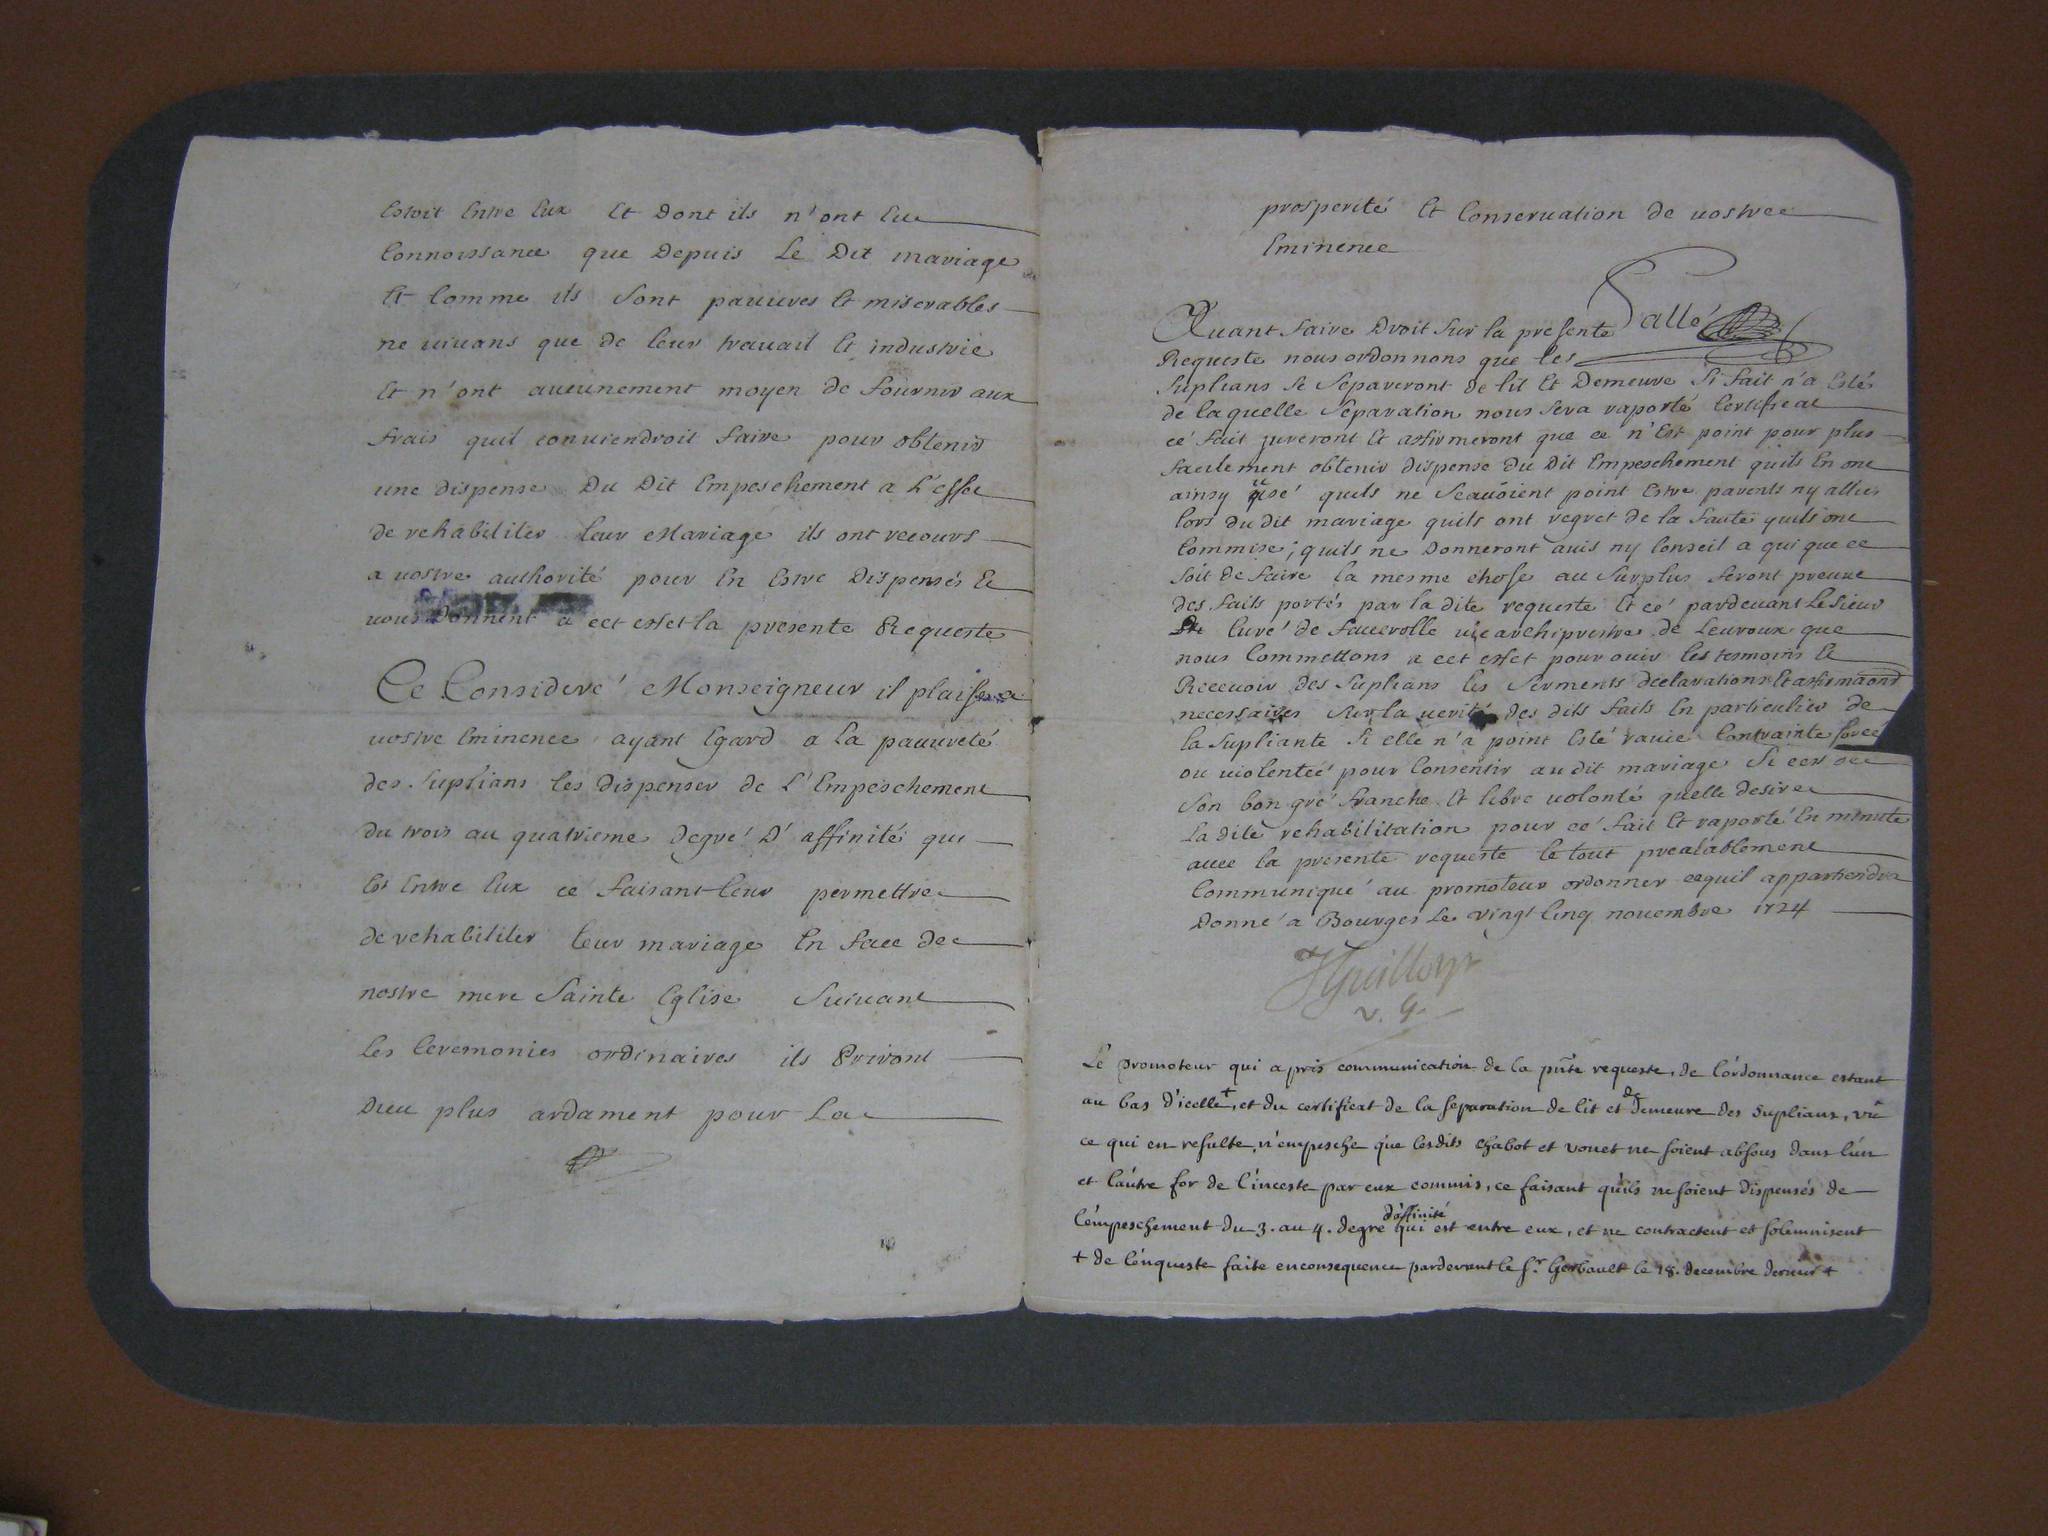 Estoit Entre Eux Et Dont ils n'ont Eue
Connoissance que Depuis Le Dit mariage
Et Comme ils sont pauures Et miserables
ne uiuans que de leur trauail Et industrie
Et n'ont aucunement moyen de fournir aux
frais quil conuiendroit faire pour obtenir
une dispense Du Dit Empeschement a L'effec
de rehabiliter leur Mariage ils ont recours
a uostre authorité pour En Estre Dispensés Et
uous Donnent a cet effet la presente Requeste
Ce Consideré Monseigneur il plaise a
uostre Eminence ayant Egard a la pauureté
des suplians les dispenser de L'Empeschement
du trois au quatrieme degré D'affinité qui
Est Entre Eux ce faisant leur permettre
de rehabiliter leur mariage En face de
nostre mere Sainte Eglise suiuant
les Ceremonies ordinaires ils Priront
Dieu plus ardament pour La
prosperité Et Conseruation de uostre
Eminence
Pallé
Auant faire Droit sur la presente
Requeste nous ordonnons que les
suplians se separeront de lit Et Demeure si fait n'a Esté
de laquelle separation nous sera raporté Certificat
ce fait jureront Et affirmeront que ce n'Est point pour plus
facilement obtenir dispense du Dit Empeschement quils En ont
ainsy usé quils ne scauoient point Estre parents ny alliés
lors du dit mariage quils ont regret de la faute quils ont
Commise; quils ne Donneront auis ny Conseil a qui que ce
soit de faire la mesme chose au surplus feront preuue
des faits portés par la dite requeste Et ce pardeuant Le sieur
Curé de faverolle uicearchiprestre de Leuroux que
nous Commettons a cet effet pour ouir les tesmoins Et
Receuoir des suplians les serments declarations Et affirmaons
necessaires sur la uerité des dits faits En particulier de
la supliante si elle n'a point Esté rauie Contrainte forcé
ou uiolentée pour Consentir au dit mariage si cest de
son bon gré franche Et libre uolonté quelle desire
La dite rehabilitation pour ce fait Et raporté En minute
auec la presente requeste le tout prealablement
Communiqué au promoteur ordonner cequil appartiendra
Donné a Bourges Le vingt Cinq nouembre 1724
V. G.
Le promoteur qui a pris communication de la pnte requeste, de l'ordonnance estant
au bas d'icelle +, et du certificat de la separation de lit et de demeure des suplians, vû
ce qui en resulte, n'empesche que lesdits chabot et vouet ne soient absous dans l'un
et l'autre for de l'inceste par eux commis, ce faisant qu'ils ne soient dispensés de
l'empeschement du 3. au 4. degre d'affinité qui est entre eux, et ne contractent et solemnisent
+ de l'enqueste faite enconsequence pardevant le Sr. Gerbault le 18. decembre dernier +